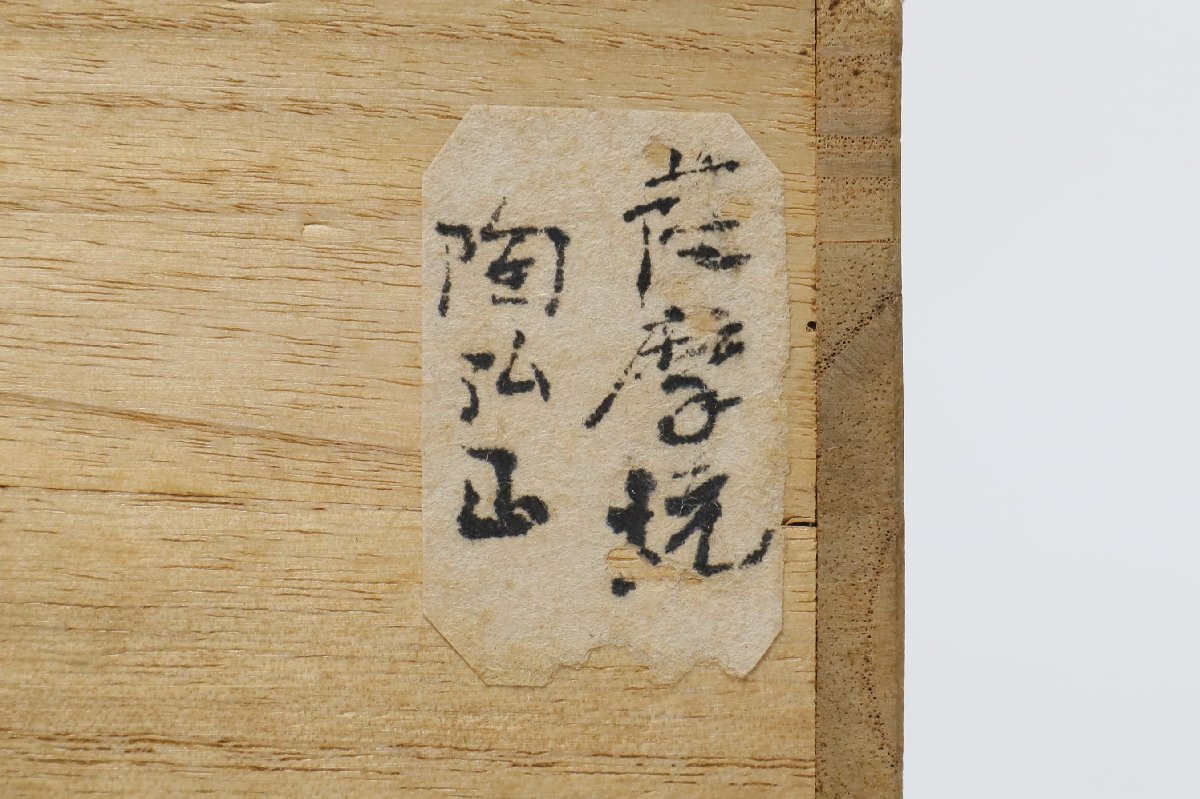 薩摩焼
陶弘山